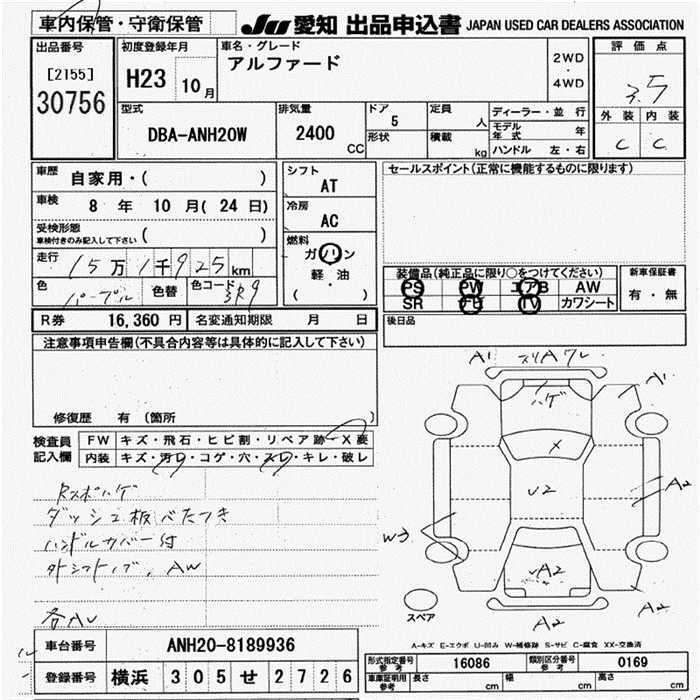 車内保管・守衛保管
JU 愛知 出品申込書 JAPAN USED CAR DEALERS ASSOCIATION
出品番号
[2155]
30756
初度登録年月
H23 10月
車名・グレード
アルファード
2WD
・
4WD
評価点
3.5
外装 内装
C C
型式
DBA-ANH20W
排気量
2400 CC
ドア
5
形状
定員
人
積載
kg
ディーラー・並行
モデル年式 年
ハンドル 左・右
車歴
自家用・( )
車検
8 年 10 月( 24 日)
受検形態
車検付きのみ記入して下さい ( )
走行
15万1千925km
色
パープル
色替
色コード
3R9
シフト
AT
冷房
AC
燃料
ガソリン
軽・油
( )
セールスポイント(正常に機能するものに限ります)
装備品(純正品に限り○をつけてください)
PS PW エアB AW
SR ナビ TV カワシート
新車保証書
有・無
後日品
R券 16,360 円 名変通知期限 月 日
注意事項申告欄(不具合内容等は具体的に記入して下さい)
修復歴 有 (箇所 )
検査員記入欄
FW キズ・飛石・ヒビ割・リペア跡・X要
内装 キズ・汚レ・コゲ・穴・スレ・キレ・破レ
Rスポハゲ
ダッシュ板べたつき
ハンドルカバー付
外シフトノブ、AW
各AU
A1 スリA ワレ
A1
ハゲ
X
U2
A2
W3
UA2
A2
A2
スペア
A-キズ E-エクボ U-凹み W-補修跡 S-サビ C-腐食 XX-交換済
車台番号 ANH20-8189936
登録番号 横浜 305 せ 2726
形式指定番号 参考 16086 類別区分番号 参考 0169
車庫証明用 参考 長さ cm 幅 cm 高さ cm